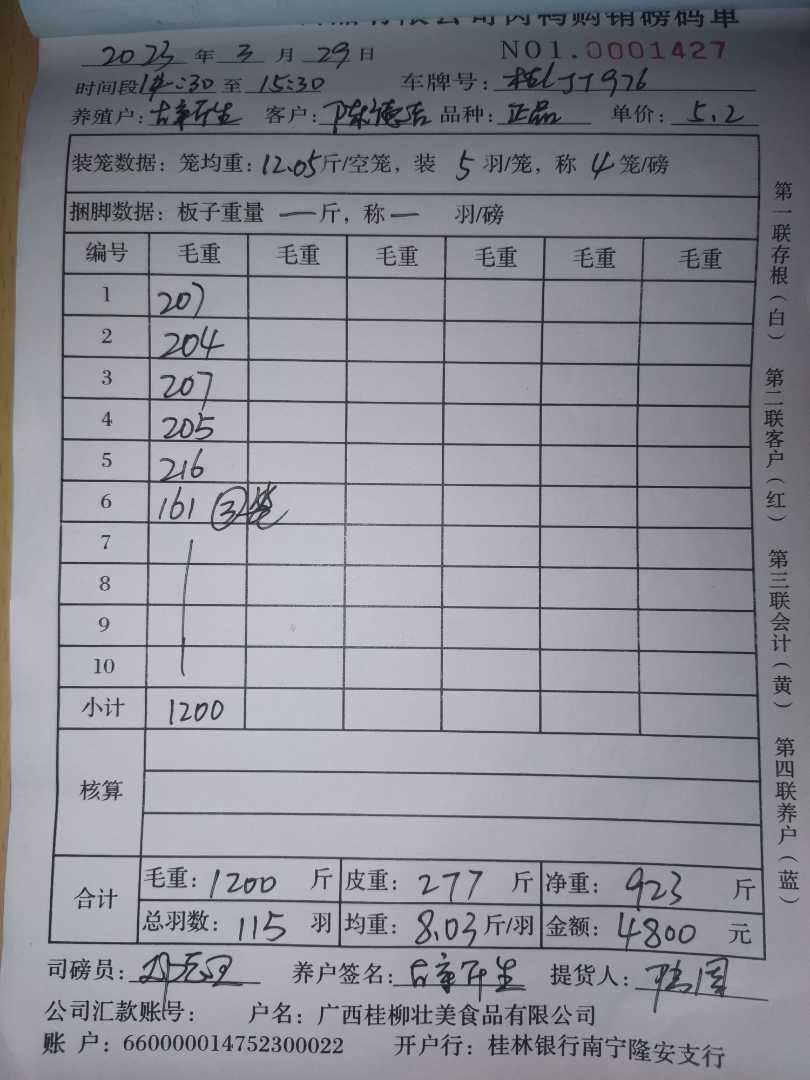 有限公司肉鸭购销磅码单
2023年3月29日 NO1.0001427
时间段14:30至15:30 车牌号:桂JJ976
养殖户: 客户:陈德 品种:正品 单价:5.2
装笼数据:笼均重:12.05斤/空笼,装5羽/笼,称4笼/磅
捆脚数据:板子重量一斤,称一羽/磅
编号 毛重 毛重 毛重 毛重 毛重 毛重
1 207
2 204
3 207
4 205
5 216
6 161 ③笼
7
8
9
10
小计 1200
核算
合计 毛重:1200斤 皮重:277斤 净重:923斤
总羽数:115羽 均重:8.03斤/羽 金额:4800元
司磅员: 养户签名: 提货人:
公司汇款账号: 户名:广西桂柳壮美食品有限公司
账户:660000014752300022 开户行:桂林银行南宁隆安支行
第一联存根(白) 第二联客户(红) 第三联会计(黄) 第四联养户(蓝)